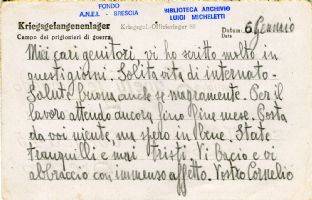 FONDO
A.N.E.I. - BRESCIA
BIBLIOTECA ARCHIVIO
LUIGI MICHELETTI
Kriegsgefangenenlager
Campo dei prigionieri di guerra
Datum: 6 Gennaio
Miei cari genitori, vi ho scritto molto in
questi giorni. Solita vita di internato.
Salute buona, anche se magramente. Per il
lavoro attendo ancora fino fine mese. Posta
da voi niente, ma spero in bene. State
tranquilli e mai tristi. Vi bacio e vi
abbraccio con immenso affetto. Vostro Cornelio